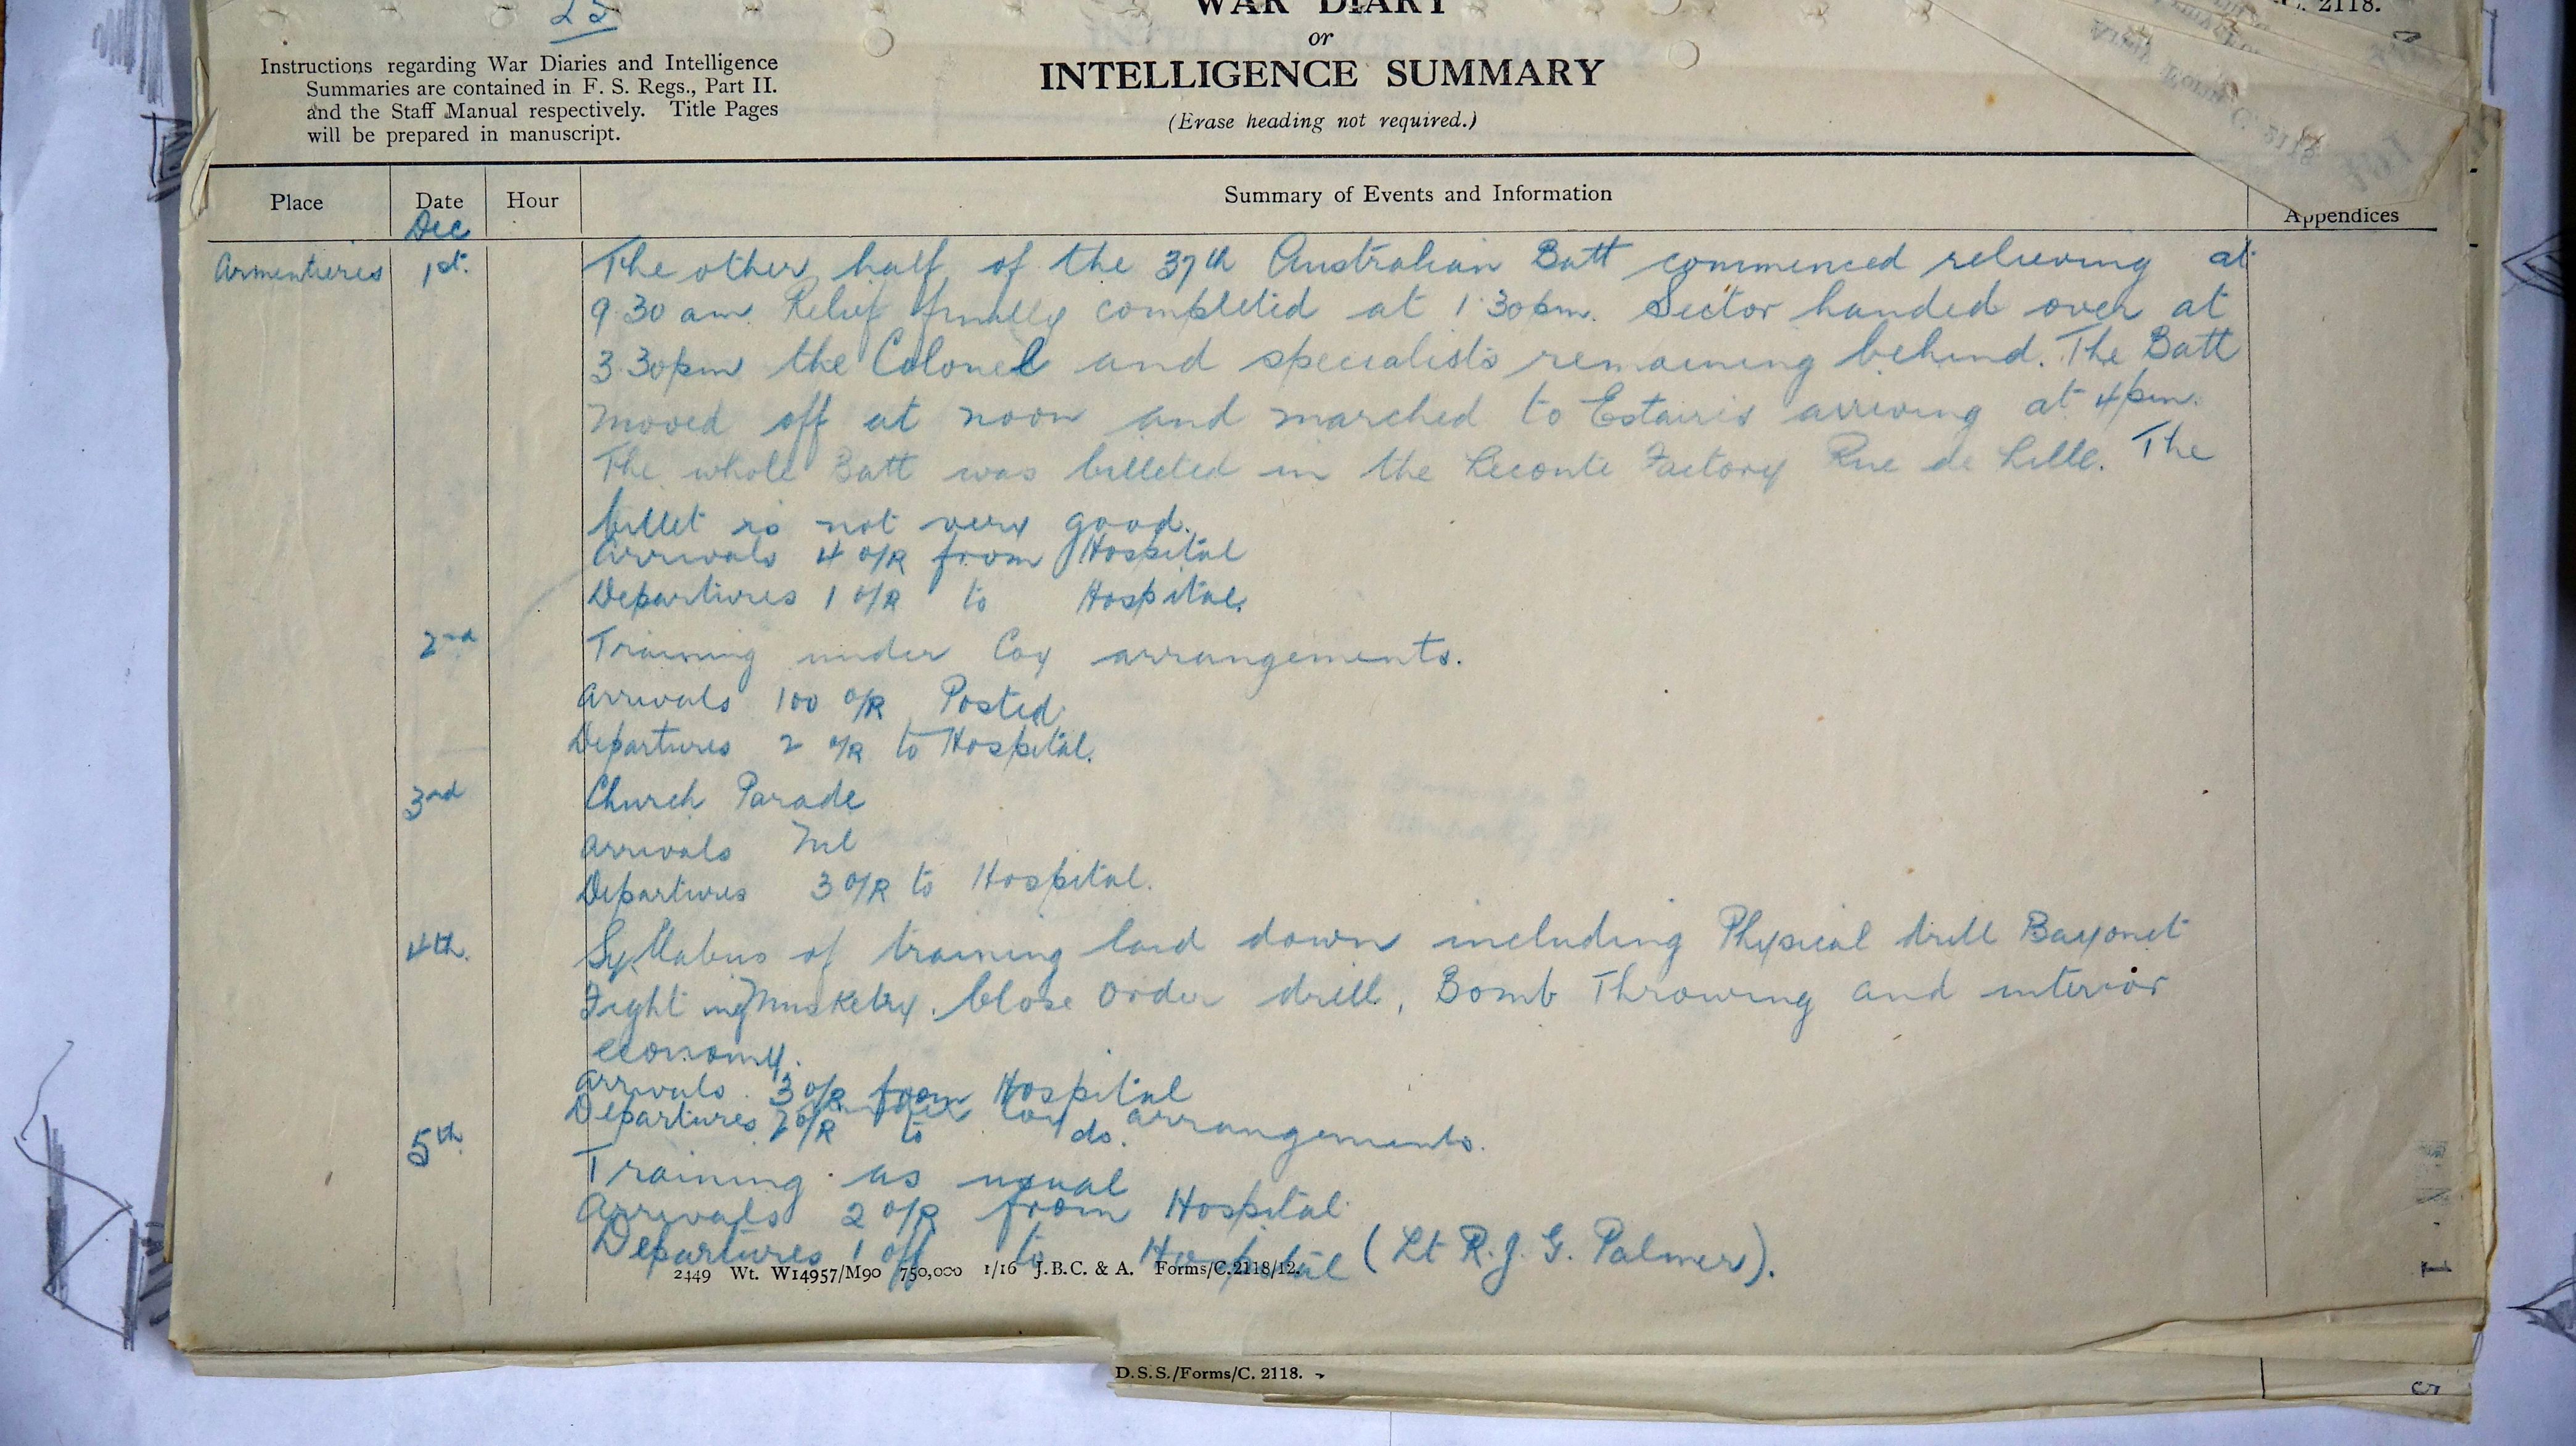 25
WAR DIARY
or
INTELLIGENCE SUMMARY
(Erase heading not required.)
C. 2118.
Instructions regarding War Diaries and Intelligence
Summaries are contained in F. S. Regs., Part II.
and the Staff Manual respectively. Title Pages
will be prepared in manuscript.
Place Date Hour Summary of Events and Information Appendices
Dec
Armentieres 1st. The other half of the 37th Australian Batt commenced relieving at
9.30 am. Relief finally completed at 1.30pm. Sector handed over at
3.30pm the Colonel and specialists remaining behind. The Batt
moved off at noon and marched to Estaires arriving at 4pm.
The whole Batt was billeted in the Leconte Factory Rue de Lille. The
billet is not very good.
Arrivals 4 O/R from Hospital
Departures 1 O/R to Hospital.
2nd Training under Coy arrangements.
Arrivals 100 O/R Posted.
Departures 2 O/R to Hospital.
3rd Church Parade
Arrivals Nil
Departures 3 O/R to Hospital.
4th. Syllabus of training laid down including Physical drill Bayonet
Fighting Musketry. Close order drill, Bomb Throwing and interior
economy.
Arrivals. 3 O/R from Hospital
Departures 2 O/R to do.
5th Coy arrangements.
Training as usual
Arrivals 2 O/R from Hospital
Departures 1 off to Hospital (Lt R. J. G. Palmer).
2449 Wt. W14957/M90 750,000 1/16 J.B.C. & A. Forms/C.2118/12.
D.S.S./Forms/C. 2118.